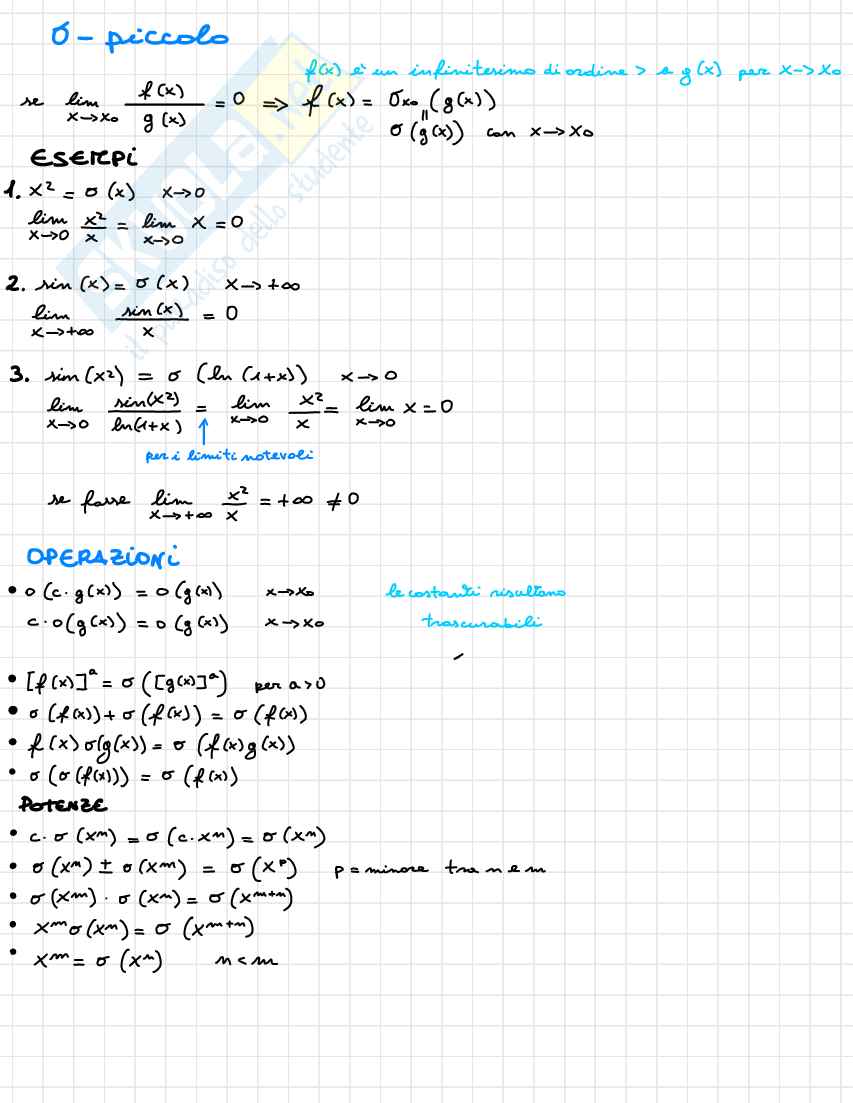 σ - piccolo
f(x) è un infinitesimo di ordine > a g(x) per x→x₀
se lim x→x₀ f(x)/g(x) = 0 ⇒ f(x) = σx₀(g(x))
=
σ(g(x)) con x→x₀
ESEMPI
1. x² = σ(x) x→0
lim x→0 x²/x = lim x→0 x = 0
2. sin(x) = σ(x) x→+∞
lim x→+∞ sin(x)/x = 0
3. sin(x²) = σ(ln(1+x)) x→0
lim x→0 sin(x²)/ln(1+x) = lim x→0 x²/x = lim x→0 x = 0
↑
per i limiti notevoli
se fosse lim x→+∞ x²/x = +∞ ≠ 0
OPERAZIONI
• o(c·g(x)) = o(g(x)) x→x₀ le costanti risultano
c·o(g(x)) = o(g(x)) x→x₀ trascurabili
• [f(x)]ᵃ = σ([g(x)]ᵃ) per a>0
• σ(f(x)) + σ(f(x)) = σ(f(x))
• f(x)σ(g(x)) = σ(f(x)g(x))
• σ(σ(f(x))) = σ(f(x))
POTENZE
• c·σ(xⁿ) = σ(c·xⁿ) = σ(xⁿ)
• σ(xⁿ) ± σ(xᵐ) = σ(xᵖ) p = minore tra n e m
• σ(xᵐ)·σ(xⁿ) = σ(xᵐ⁺ⁿ)
• xᵐσ(xⁿ) = σ(xᵐ⁺ⁿ)
• xᵐ = σ(xⁿ) n<m
SKUOLA.net
il paradiso dello studente